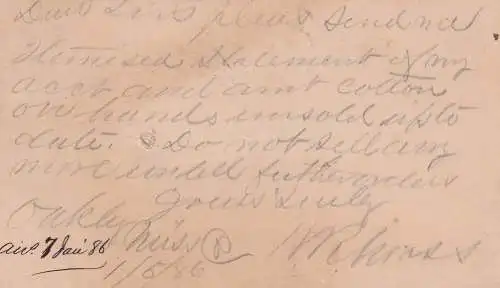 Dear Sirs please send me
Itemised Statement of my
acct and amt cotton
on hands unsold up to
date. Do not sell any
more untill further orders
Yours truly
Oakley Miss
ans. 7 Jan 86
1/6/86